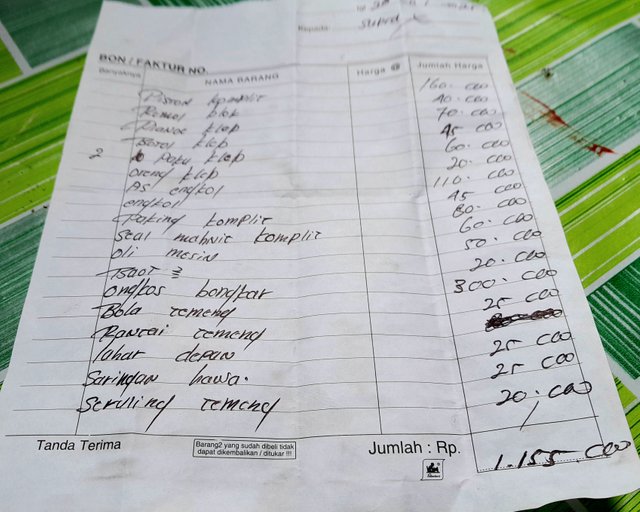 supra x
Kepada
BON / FAKTUR NO.
Banyaknya NAMA BARANG Harga @ Jumlah Harga
Piston komplit 160.000
Remol blok 40.000
klep 70.000
klep 45 000
2 Paku klep 60.000
oreng klep 20.000
AS engkol 110.000
engkol 45 000
Paking komplit 80.000
Seal mahnit komplit 60.000
oli mesin 50.000
20.000
ongkos bongkar 300.000
Bola temeng 25 000
Rantai temeng
lahar depan 25 000
Saringan hawa. 25 000
Seruling temeng 20.000
Tanda Terima
Barang2 yang sudah dibeli tidak
dapat dikembalikan / ditukar !!!
Jumlah : Rp. 1.155.000